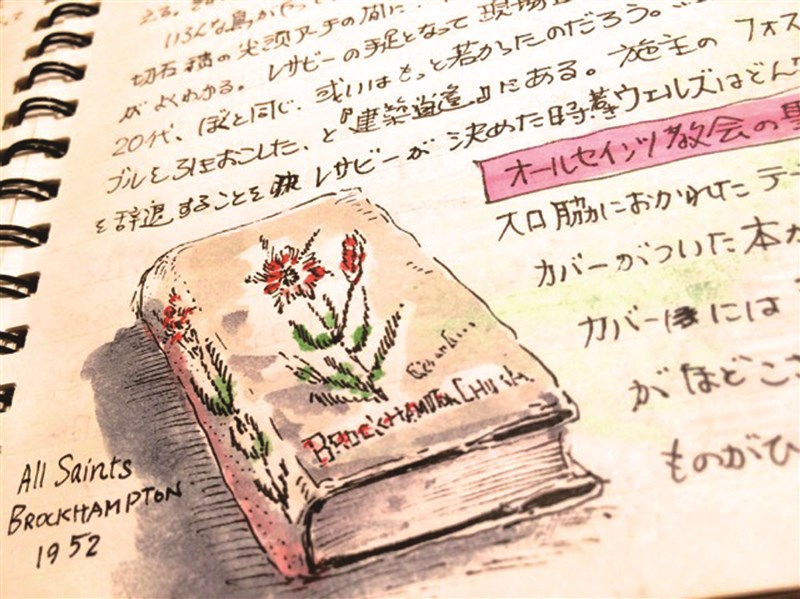 いろんな鳥が
切石積の尖頭アーチの間に
がよくわかる。レサビーの手足となって 現場
20代、ぼくと同じ、或いはもっと若かったのだろう。
ブルをろほおこした、と『建築遺産』にある。施主の フォス
を辞退することを レサビーが 決めた時 ウェルズはどん
オールセインツ教会の聖
入口脇におかれたテー
カバーがついた本が
カバーには
がほどこさ
ものがひ
BROCKHAMPTON CHURCH
All Saints
BROCKHAMPTON
1952